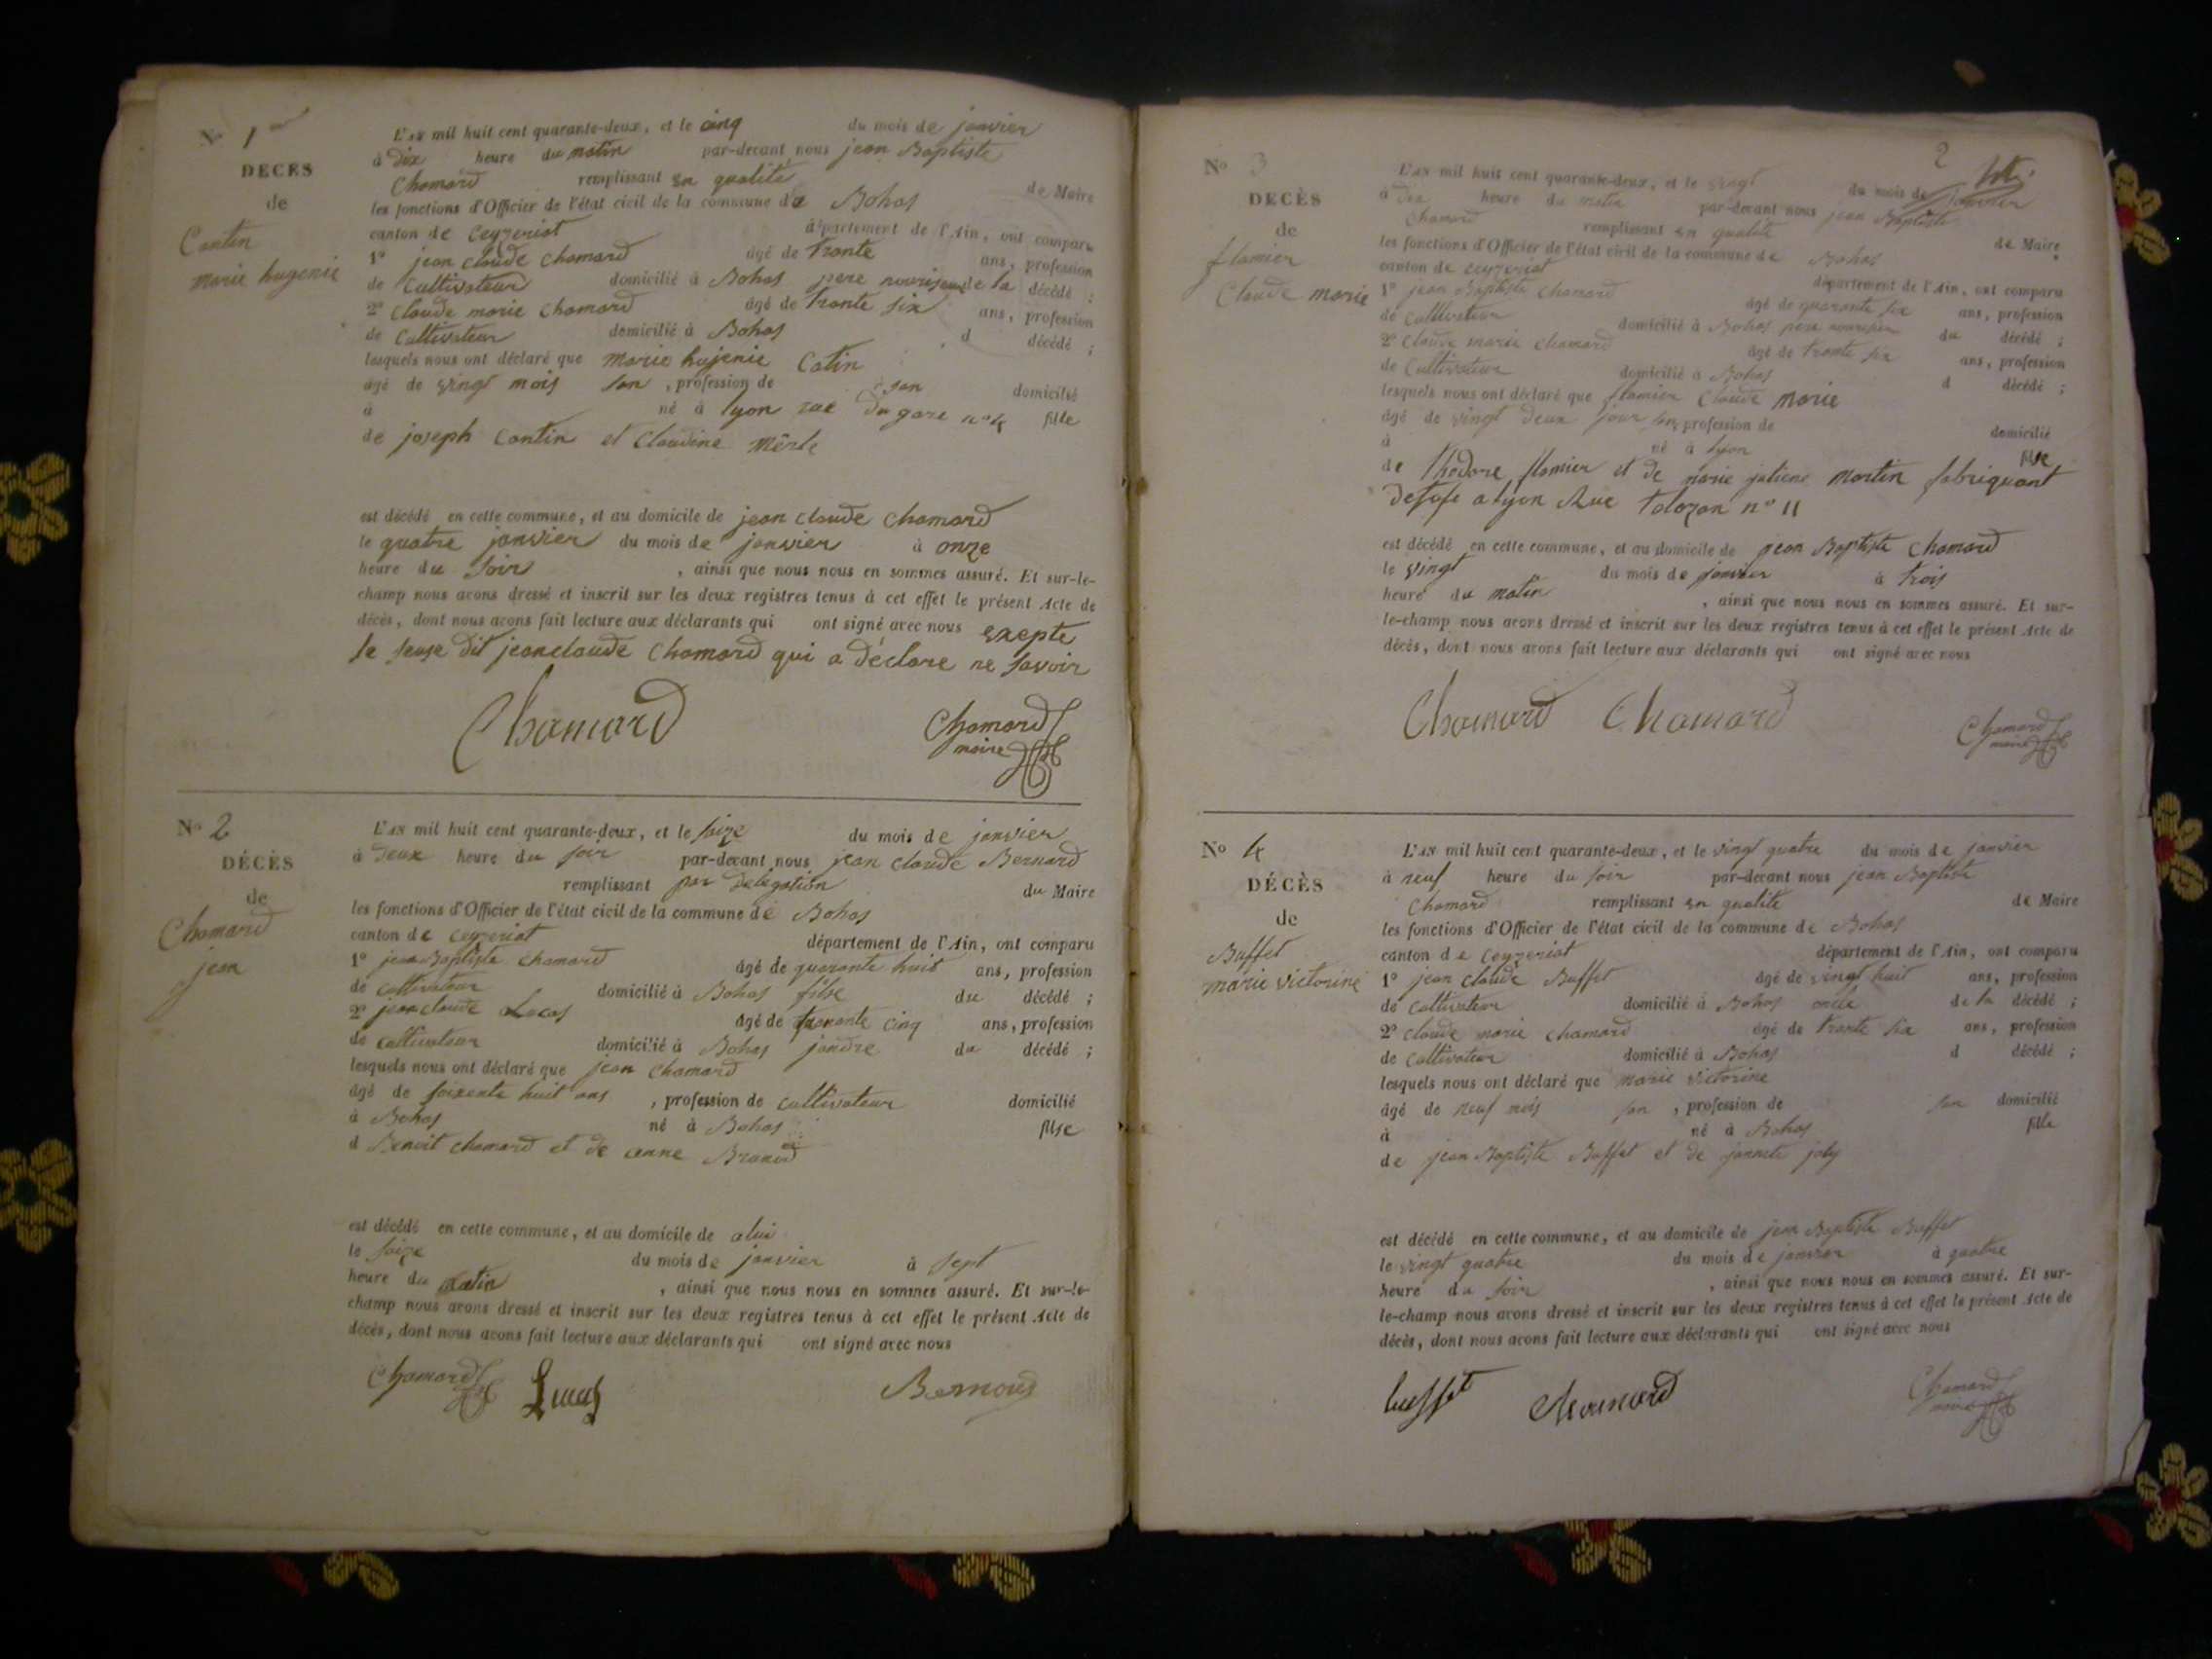 N. 1er
DECES
de
Contin
marie hugenie
L'an mil huit cent quarante-deux, et le cinq du mois de janvier
à Dix heure du matin par-devant nous jean Baptiste
Chamard remplissant en qualité de Maire
les fonctions d'Officier de l'état civil de la commune de Bohas
canton de Ceyzeriat département de l'Ain, ont comparu
1° jean claude chamard âgé de trante ans, profession
de Cultivateur domicilié à Bohas pere de la décédé ;
2° claude marie chamard âgé de trante six ans, profession
de Cultivateur domicilié à Bohas d décédé ;
lesquels nous ont déclaré que marie hujenie Catin
âgé de vingt mois san , profession de san domicilié
à né à lyon rue du gare n° 4 fille
de joseph Contin et Claudine Mérle
est décédé en cette commune, et au domicile de jean claude chamard
le quatre janvier du mois de janvier à onze
heure du soir , ainsi que nous nous en sommes assuré. Et sur-le-
champ nous avons dressé et inscrit sur les deux registres tenus à cet effet le présent Acte de
décès, dont nous avons fait lecture aux déclarants qui ont signé avec nous exepte
le suse dit jean claude Chamard qui a déclare ne savoir
Chamard Chamard
maire
N° 2
DÉCÈS
de
Chamard
jean
L'an mil huit cent quarante-deux, et le saize du mois de janvier
à deux heure du soir par-devant nous jean claude Bernard
remplissant par délégation du Maire
les fonctions d'Officier de l'état civil de la commune de Bohas
canton de ceyzeriat département de l'Ain, ont comparu
1° jean Baptiste chamard âgé de quarante huit ans, profession
de cultivateur domicilié à Bohas filse du décédé ;
2° jean claude Lucas âgé de cinq ans, profession
de cultivateur domicilié à Bohas jandre du décédé ;
lesquels nous ont déclaré que jean chamard
âgé de soixente huit ans , profession de cultivateur domicilié
à Bohas né à Bohas filse
d Benoit chamard et de anne
est décédé en cette commune, et au domicile de alui
le saize du mois de janvier à sept
heure du matin , ainsi que nous nous en sommes assuré. Et sur-le-
champ nous avons dressé et inscrit sur les deux registres tenus à cet effet le présent Acte de
décès, dont nous avons fait lecture aux déclarants qui ont signé avec nous
Chamard Lucas Bernard
2
N° 3
DECÈS
de
flamier
Claude marie
L'an mil huit cent quarante-deux, et le vingt du mois de janvier
à Dix heure du matin par-devant nous jean Baptiste
Chamard remplissant en qualité de Maire
les fonctions d'Officier de l'état civil de la commune de Bohas
canton de ceyzeriat département de l'Ain, ont comparu
1° jean Baptiste chamard âgé de quarante six ans, profession
de cultivateur domicilié à Bohas pere du décédé ;
2° Claude marie chamard âgé de trante six ans, profession
de Cultivateur domicilié à Bohas d décédé ;
lesquels nous ont déclaré que flamier Claude marie
âgé de vingt deux jour san profession de domicilié
à né à lyon filse
de Thedore flamier et de marie juliene martin fabriquant
a lyon Rue Tolozan n° 11
est décédé en cette commune, et au domicile de jean Baptiste chamard
le vingt du mois de janvier à trois
heure du matin , ainsi que nous nous en sommes assuré. Et sur-
le-champ nous avons dressé et inscrit sur les deux registres tenus à cet effet le présent Acte de
décès, dont nous avons fait lecture aux déclarants qui ont signé avec nous
Chamard Chamard Chamard
maire
N° 4
DÉCÈS
de
Buffet
marie victorine
L'an mil huit cent quarante-deux, et le vingt quatre du mois de janvier
à neuf heure du soir par-devant nous jean Baptiste
Chamard remplissant en qualité de Maire
les fonctions d'Officier de l'état civil de la commune de Bohas
canton de Ceyzeriat département de l'Ain, ont comparu
1° jean claude Buffet âgé de vingt huit ans, profession
de cultivateur domicilié à Bohas oncle de la décédé ;
2° Claude marie chamard âgé de trante six ans, profession
de Cultivateur domicilié à Bohas d décédé ;
lesquels nous ont déclaré que marie victorine
âgé de neuf mois san , profession de san domicilié
à né à Bohas fille
de jean Baptiste Buffet et de jannete joly
est décédé en cette commune, et au domicile de jean Baptiste Buffet
le vingt quatre du mois de janvier à quatre
heure du soir , ainsi que nous nous en sommes assuré. Et sur-
le-champ nous avons dressé et inscrit sur les deux registres tenus à cet effet le présent Acte de
décès, dont nous avons fait lecture aux déclarants qui ont signé avec nous
buffet Chamard Chamard
maire